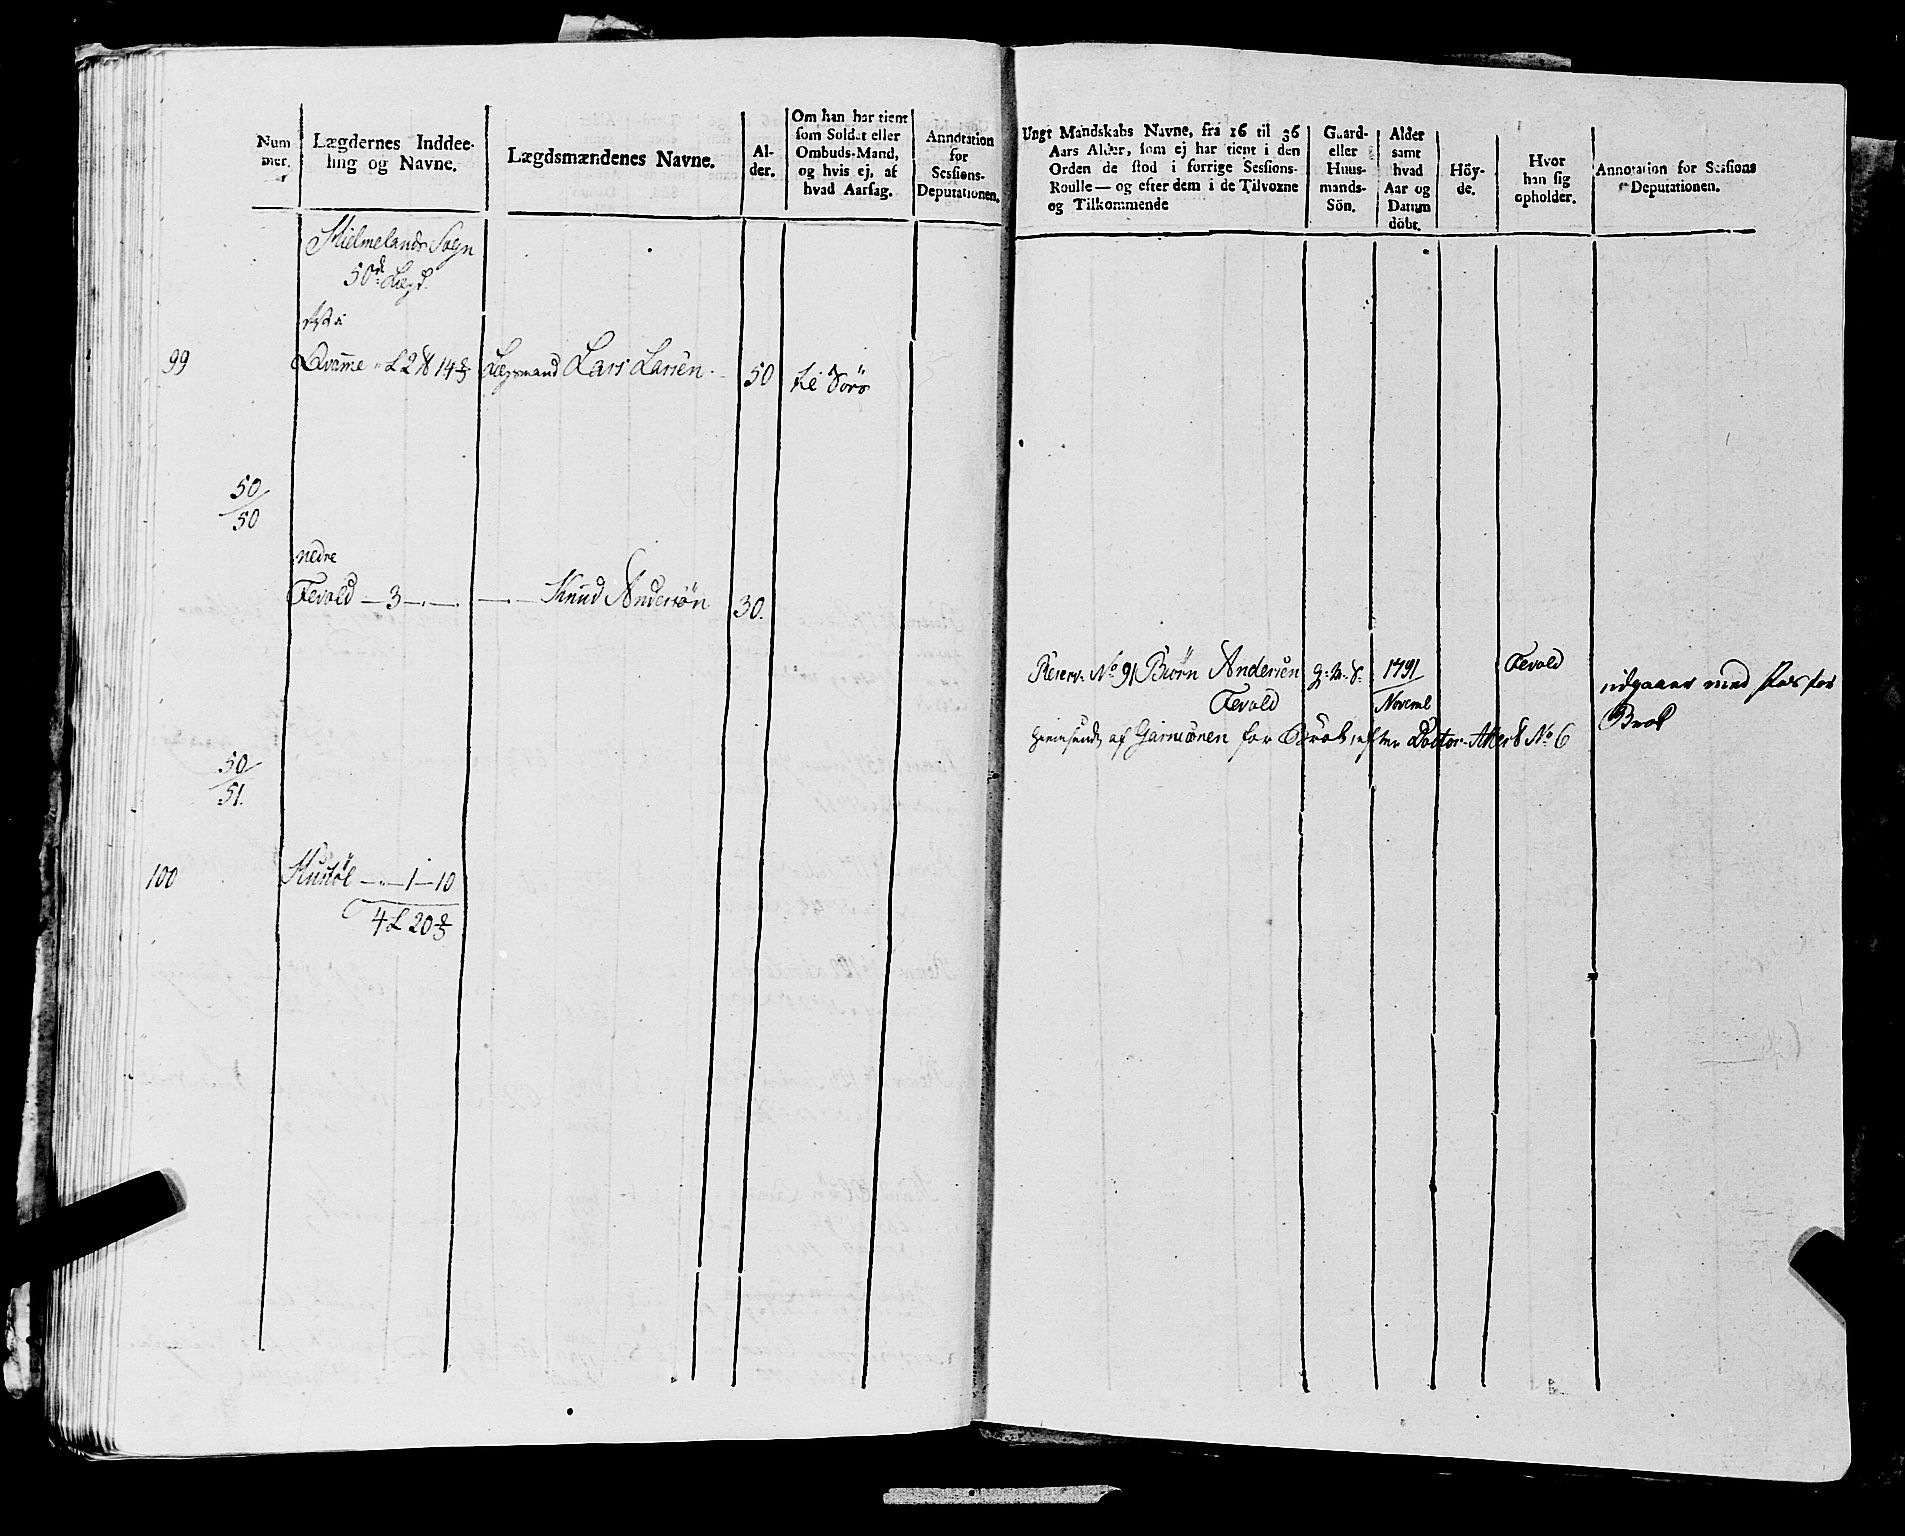 Num
mer.
Lægdernes Inddee-
ling og Navne.
Lægdsmændenes Navne.
Al-
der.
Om han har tient
som Soldat eller
Ombuds-Mand,
og hvis ej, af
hvad Aarsag.
Annotation
for
Sessions-
Deputationen.
Hielmelands Sogn
50de Lægd.
99
Qvame L 2 14 2/5
Lægsmand Lars Larsen
50
til Søes
50/50
nedre
Tevold — 3 — . —
— . — Knud Andersön
30.
50/51.
100
Hustøl — . — 1 — 10
4 L 20 2/5
Ungt Mandskabs Navne, fra 16 til 36
Aars Alder, som ej har tient i den
Orden de stod i forrige Sessions-
Roulle — og efter dem i de Tilvoxne
og Tilkommende
Gaard-
eller
Huus-
mands-
Sön.
Alder
samt
hvad
Aar og
Datum
döbt.
Höy-
de.
Hvor
han sig
opholder.
Annotation for Sessions
Deputationen.
Reserv. No 91 Biørn Andersen
Tevold
g: m. S.
1791
Noveml
Tevold
udgaaer med Pas for
Brok
hiemsendt af Garnisonen for Brok, efter Doctor-Attest No 6